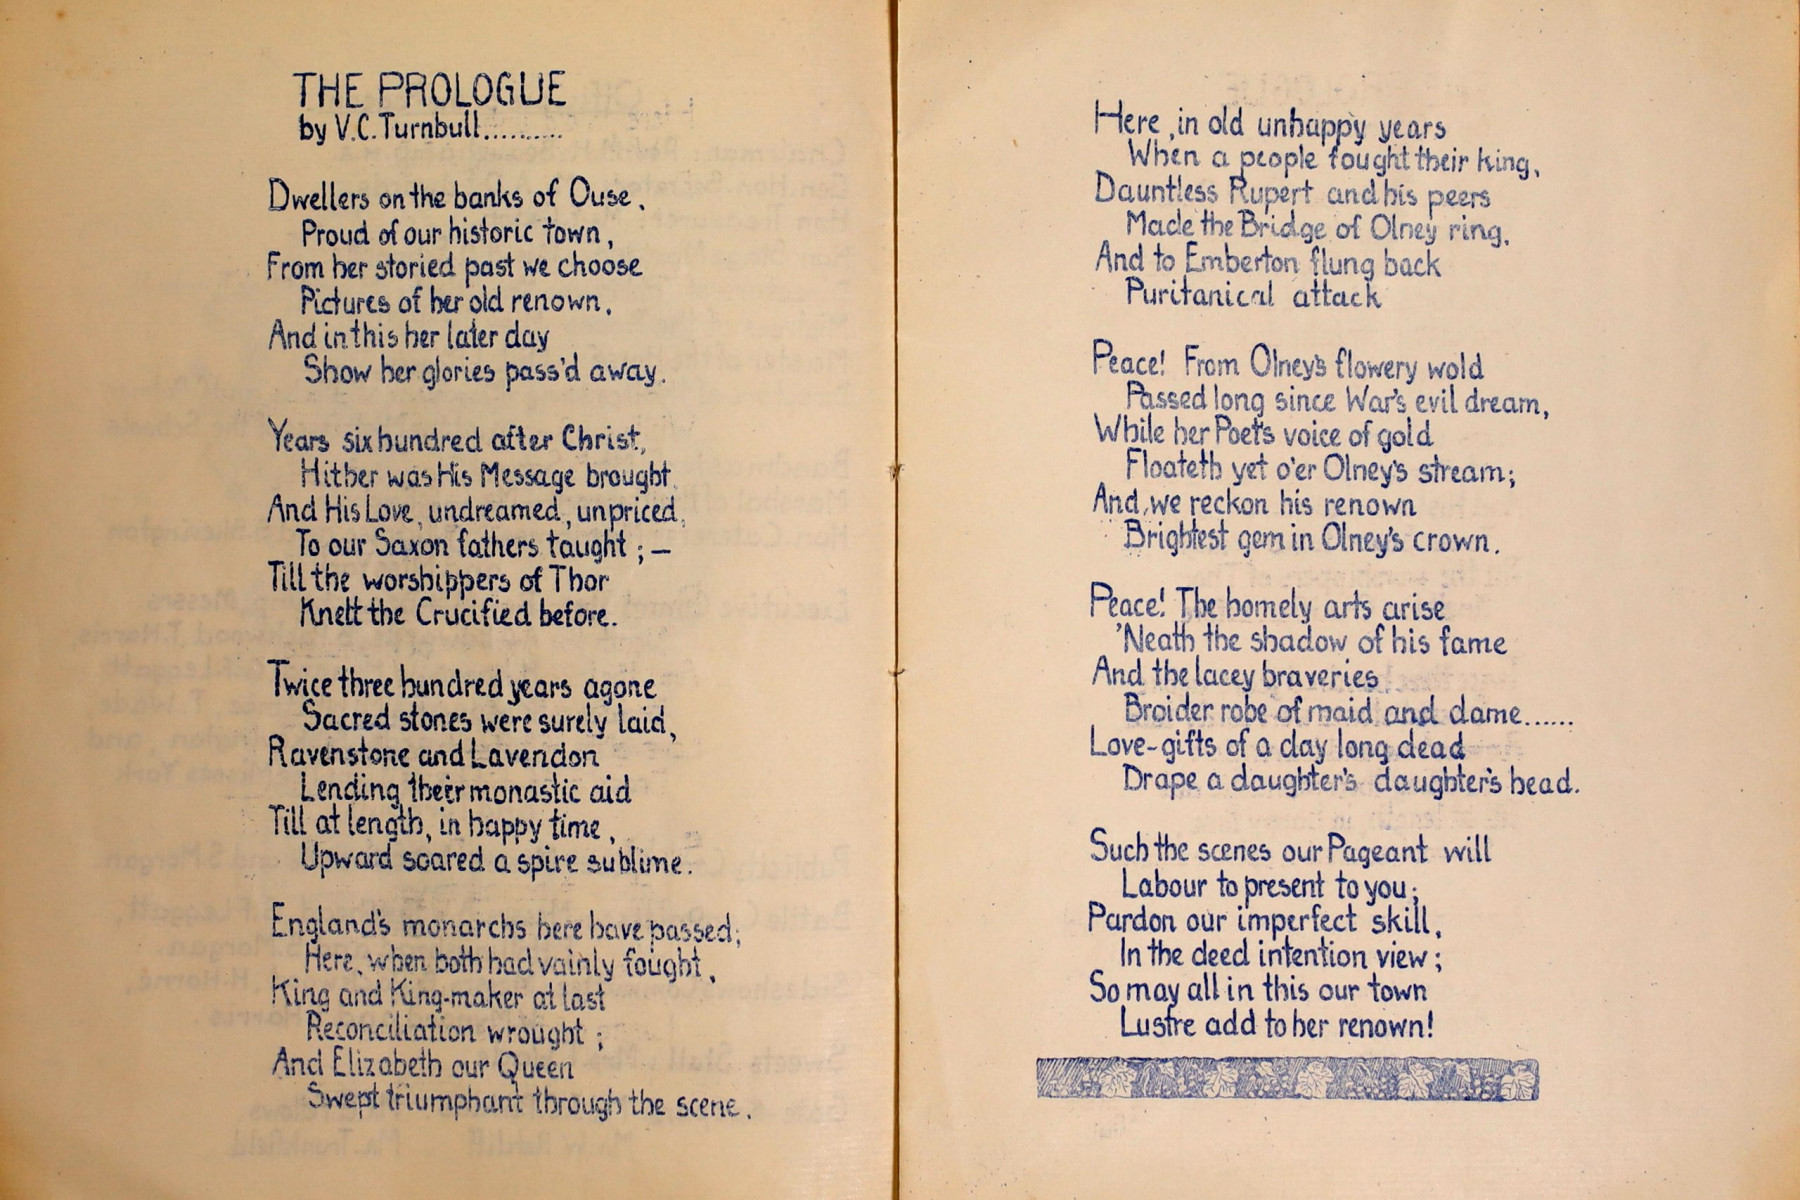 THE PROLOGUE
by V.C. Turnbull..........
Dwellers on the banks of Ouse,
Proud of our historic town,
From her storied past we choose
Pictures of her old renown,
And in this her later day
Show her glories pass'd away.
Years six hundred after Christ,
Hither was His Message brought,
And His Love, undreamed, unpriced,
To our Saxon fathers taught; —
Till the worshippers of Thor
Knelt the Crucified before.
Twice three hundred years agone
Sacred stones were surely laid,
Ravenstone and Lavendon
Lending their monastic aid
Till at length, in happy time,
Upward soared a spire sublime.
England's monarchs here have passed;
Here, when both had vainly fought,
King and King-maker at last
Reconciliation wrought;
And Elizabeth our Queen
Swept triumphant through the scene.
Here, in old unhappy years
When a people fought their king,
Dauntless Rupert and his peers
Made the Bridge of Olney ring,
And to Emberton flung back
Puritanical attack
Peace! From Olney's flowery wold
Passed long since War's evil dream,
While her Poet's voice of gold
Floateth yet o'er Olney's stream;
And, we reckon his renown
Brightest gem in Olney's crown.
Peace! The homely arts arise
'Neath the shadow of his fame
And the lacey braveries
Broider robe of maid and dame......
Love-gifts of a day long dead
Drape a daughter's daughter's head.
Such the scenes our Pageant will
Labour to present to you;
Pardon our imperfect skill,
In the deed intention view;
So may all in this our town
Lustre add to her renown!